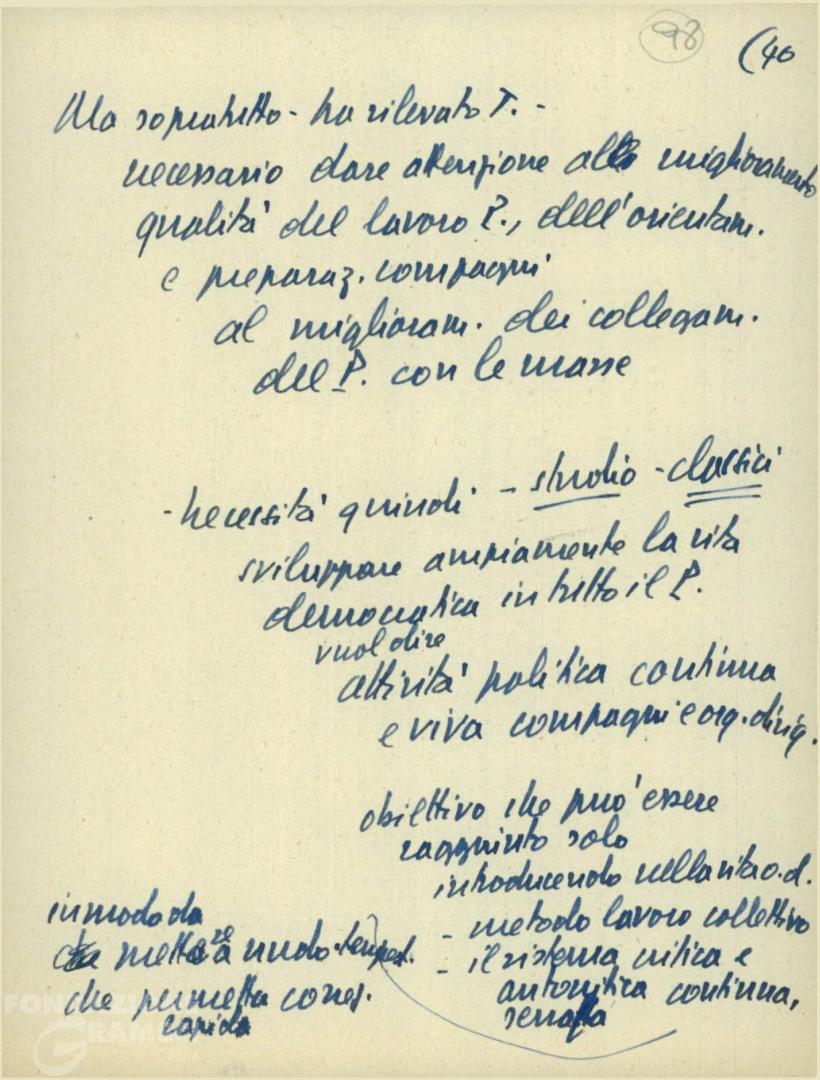 98
(40
Ma sopratutto - ha rilevato T. -
necessario dare attenzione alle miglioramento
qualità del lavoro P., dell'orientam.
e preparaz. compagni
al miglioram. dei collegam.
del P. con le masse
- necessità quindi - studio - classici
sviluppare ampiamente la vita
democratica in tutto il P.
vuol dire
attività politica continua
e viva compagni e org. dirig.
obiettivo che può essere
raggiunto solo
introducendo nella vita o.d.
- metodo lavoro collettivo
- il sistema critica e
autocritica continua,
serrata
in modo da
mettere a nudo tempest.
che permetta corres.
rapida
FONDAZIONE
GRAMSCI